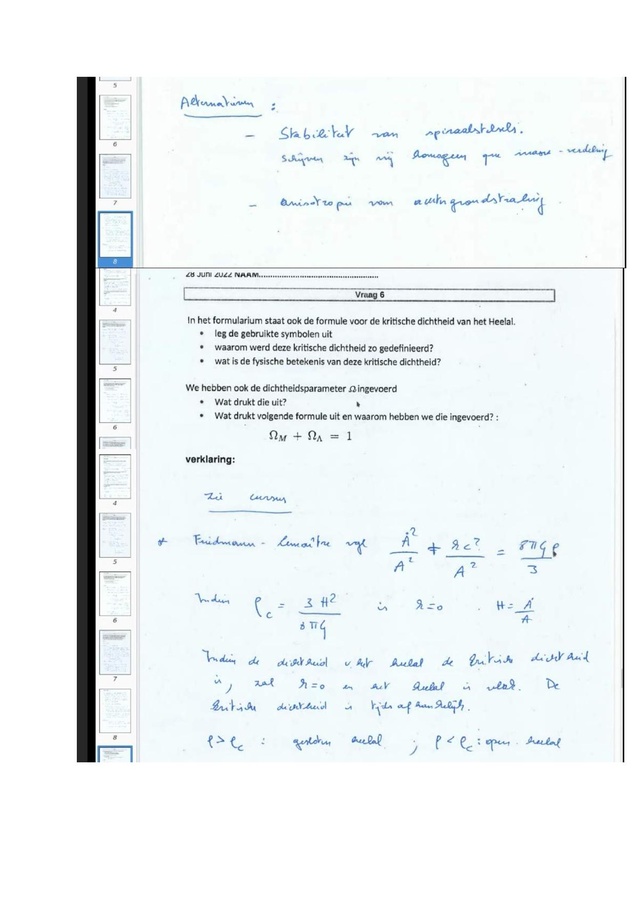 5
6
7
8
Alternatieven :
- Stabiliteit van spiraalstelsels.
schijven zijn vrij homogeen qua massa-verdeling
- anisotropie van achtergrondstraling
4
5
6
4
5
6
7
8
28 Juni 2022 NAAM
Vraag 6
In het formularium staat ook de formule voor de kritische dichtheid van het Heelal.
• leg de gebruikte symbolen uit
• waarom werd deze kritische dichtheid zo gedefinieerd?
• wat is de fysische betekenis van deze kritische dichtheid?
We hebben ook de dichtheidsparameter Ω ingevoerd
• Wat drukt die uit?
• Wat drukt volgende formule uit en waarom hebben we die ingevoerd? :
Ω_M + Ω_Λ = 1
verklaring:
zie cursus
* Friedmann - Lemaître vgl Ȧ²/A² + kc²/A² = 8πGρ/3
Indien ρc = 3H²/8πG is k=0 . H = Ȧ/A
Indien de dichtheid v het heelal de kritische dichtheid
is, zal k=0 en het heelal is vlak. De
kritische dichtheid is tijdsafhankelijk.
ρ>ρc : gesloten heelal ; ρ<ρc : open heelal